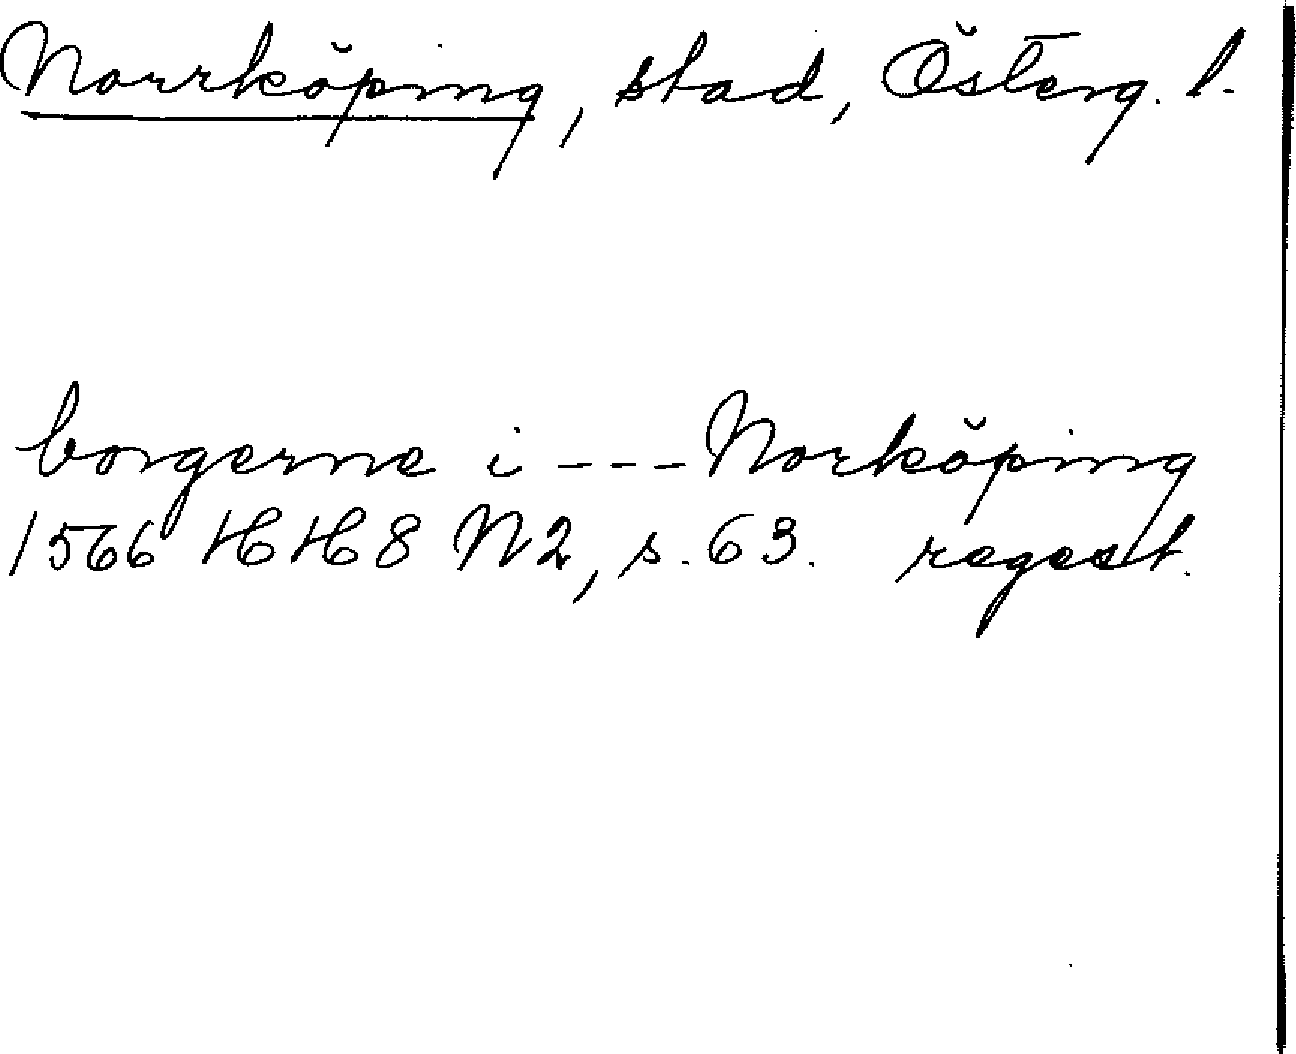 Norrköping, stad, Österg. l.
borgerne i --- Norköping
1566 HH 8 N 2, s. 63. regest.